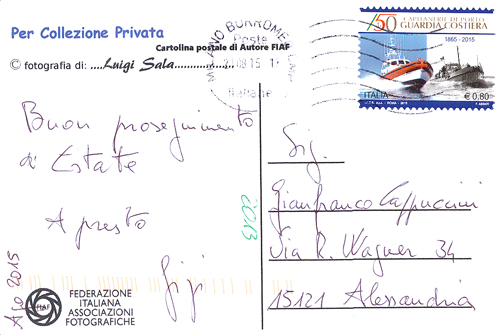 Per Collezione Privata
Cartolina postale di Autore FIAF
© fotografia di: ....Luigi Sala................
Buon proseguimento
di Estate
A presto
Gigi
Ago 2015
FIAF
FEDERAZIONE
ITALIANA
ASSOCIAZIONI
FOTOGRAFICHE
Poste
08.15
Italiane
150 CAPITANERIE DI PORTO
GUARDIA COSTIERA
1865-2015
ITALIA
€ 0,80
Sig.
Gianfranco Cappuccini
Via R. Wagner 34
15121 Alessandria